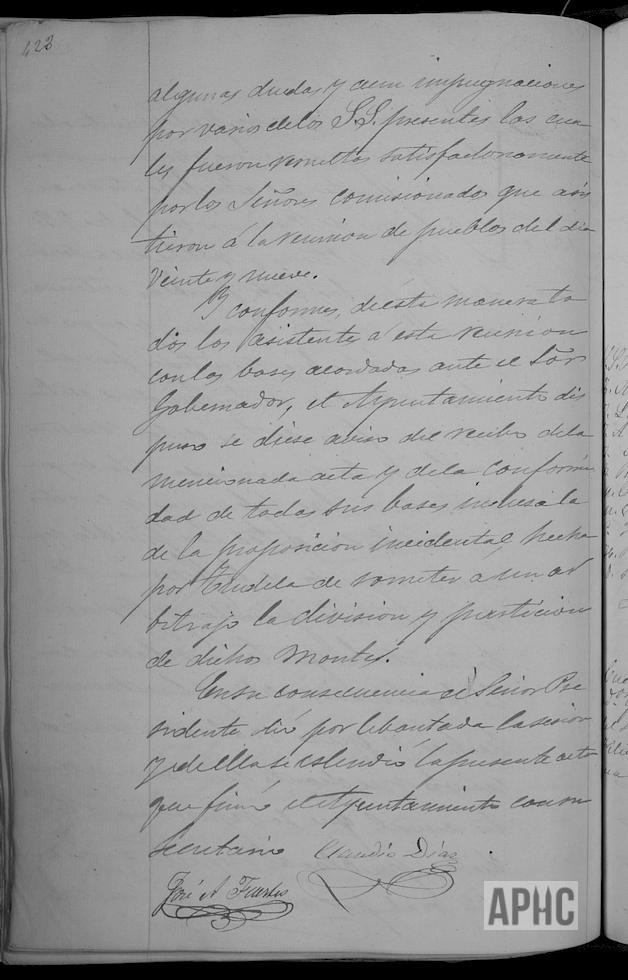 423
algunas dudas y aun impugnaciones
por varios de los S.S. presentes las cua
les fueron resueltas satisfactoriamente
por los Señores comisionados que asis
tieron á la reunion de pueblos del dia
Veinte y nueve.
Y conformes, de ésta manera to
dos los asistente a esta reunion
con las bases acordadas ante el Sor
Gobernador, el Ayuntamiento dis
puso se diese aviso del recibo de la
mencionada acta y de la conformi
dad de todas sus bases inclusa la
de la proposicion incidental, hecha
por Tudela de someter a un ar
bitrajo la division y particion
de dichos Montes.
En su consecuencia el Señor Pre
sidente dió por lebantada la sesion
y de ella se estendió la presente acta
que firmó el Ayuntamiento con su
Secretario
Claudio Díaz
José A. Fuertes
APHC